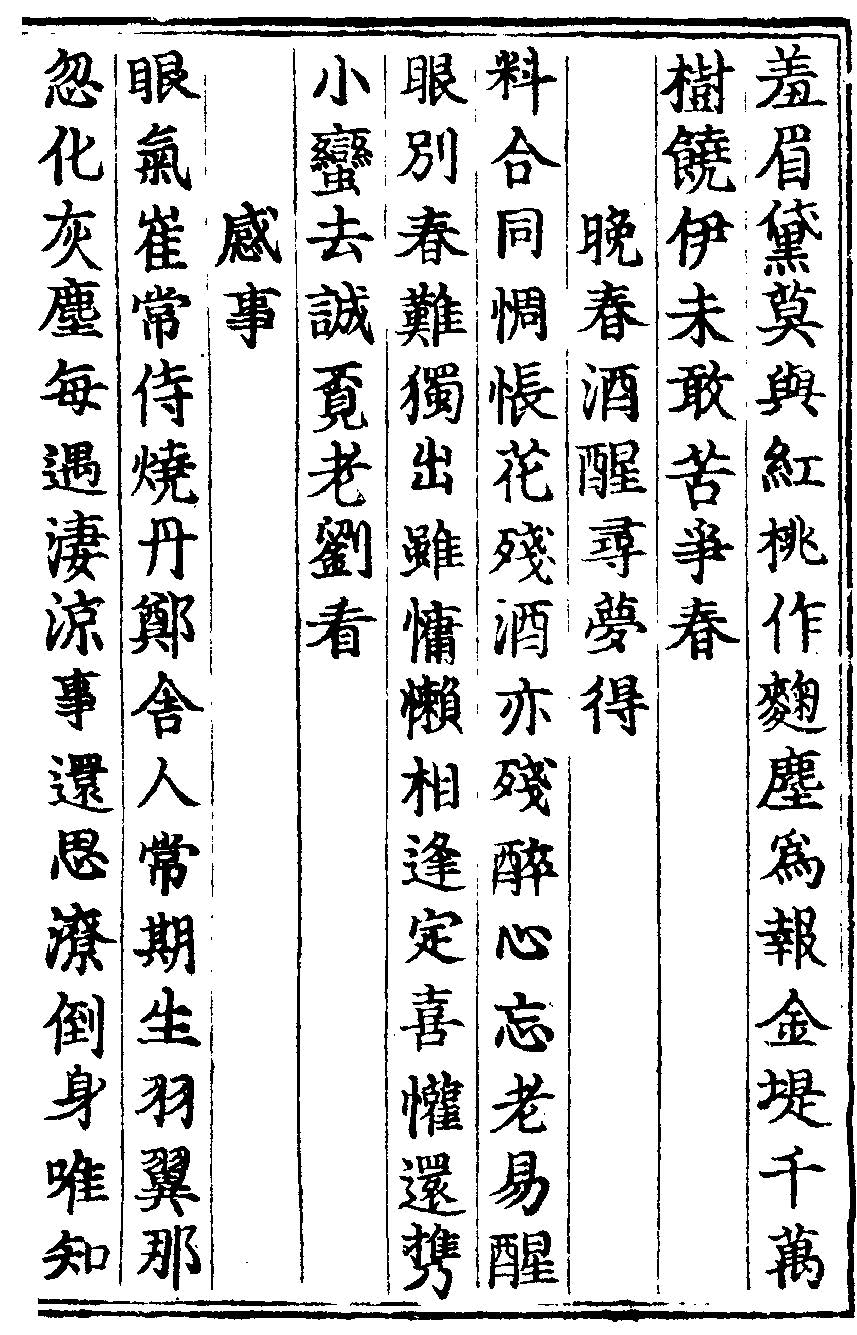 羞眉黛莫與紅桃作麴塵爲報金堤千萬
樹饒伊未敢苦爭春
晚春酒醒尋夢得
料合同惆悵花殘酒亦殘醉心忘老易醒
眼別春難獨出雖慵懶相逢定喜懽還携
小蠻去誠覔老劉看
感事
眼氣崔常侍燒丹鄭舍人常期生羽翼那
忽化灰塵每遇淒涼事還思潦倒身唯知